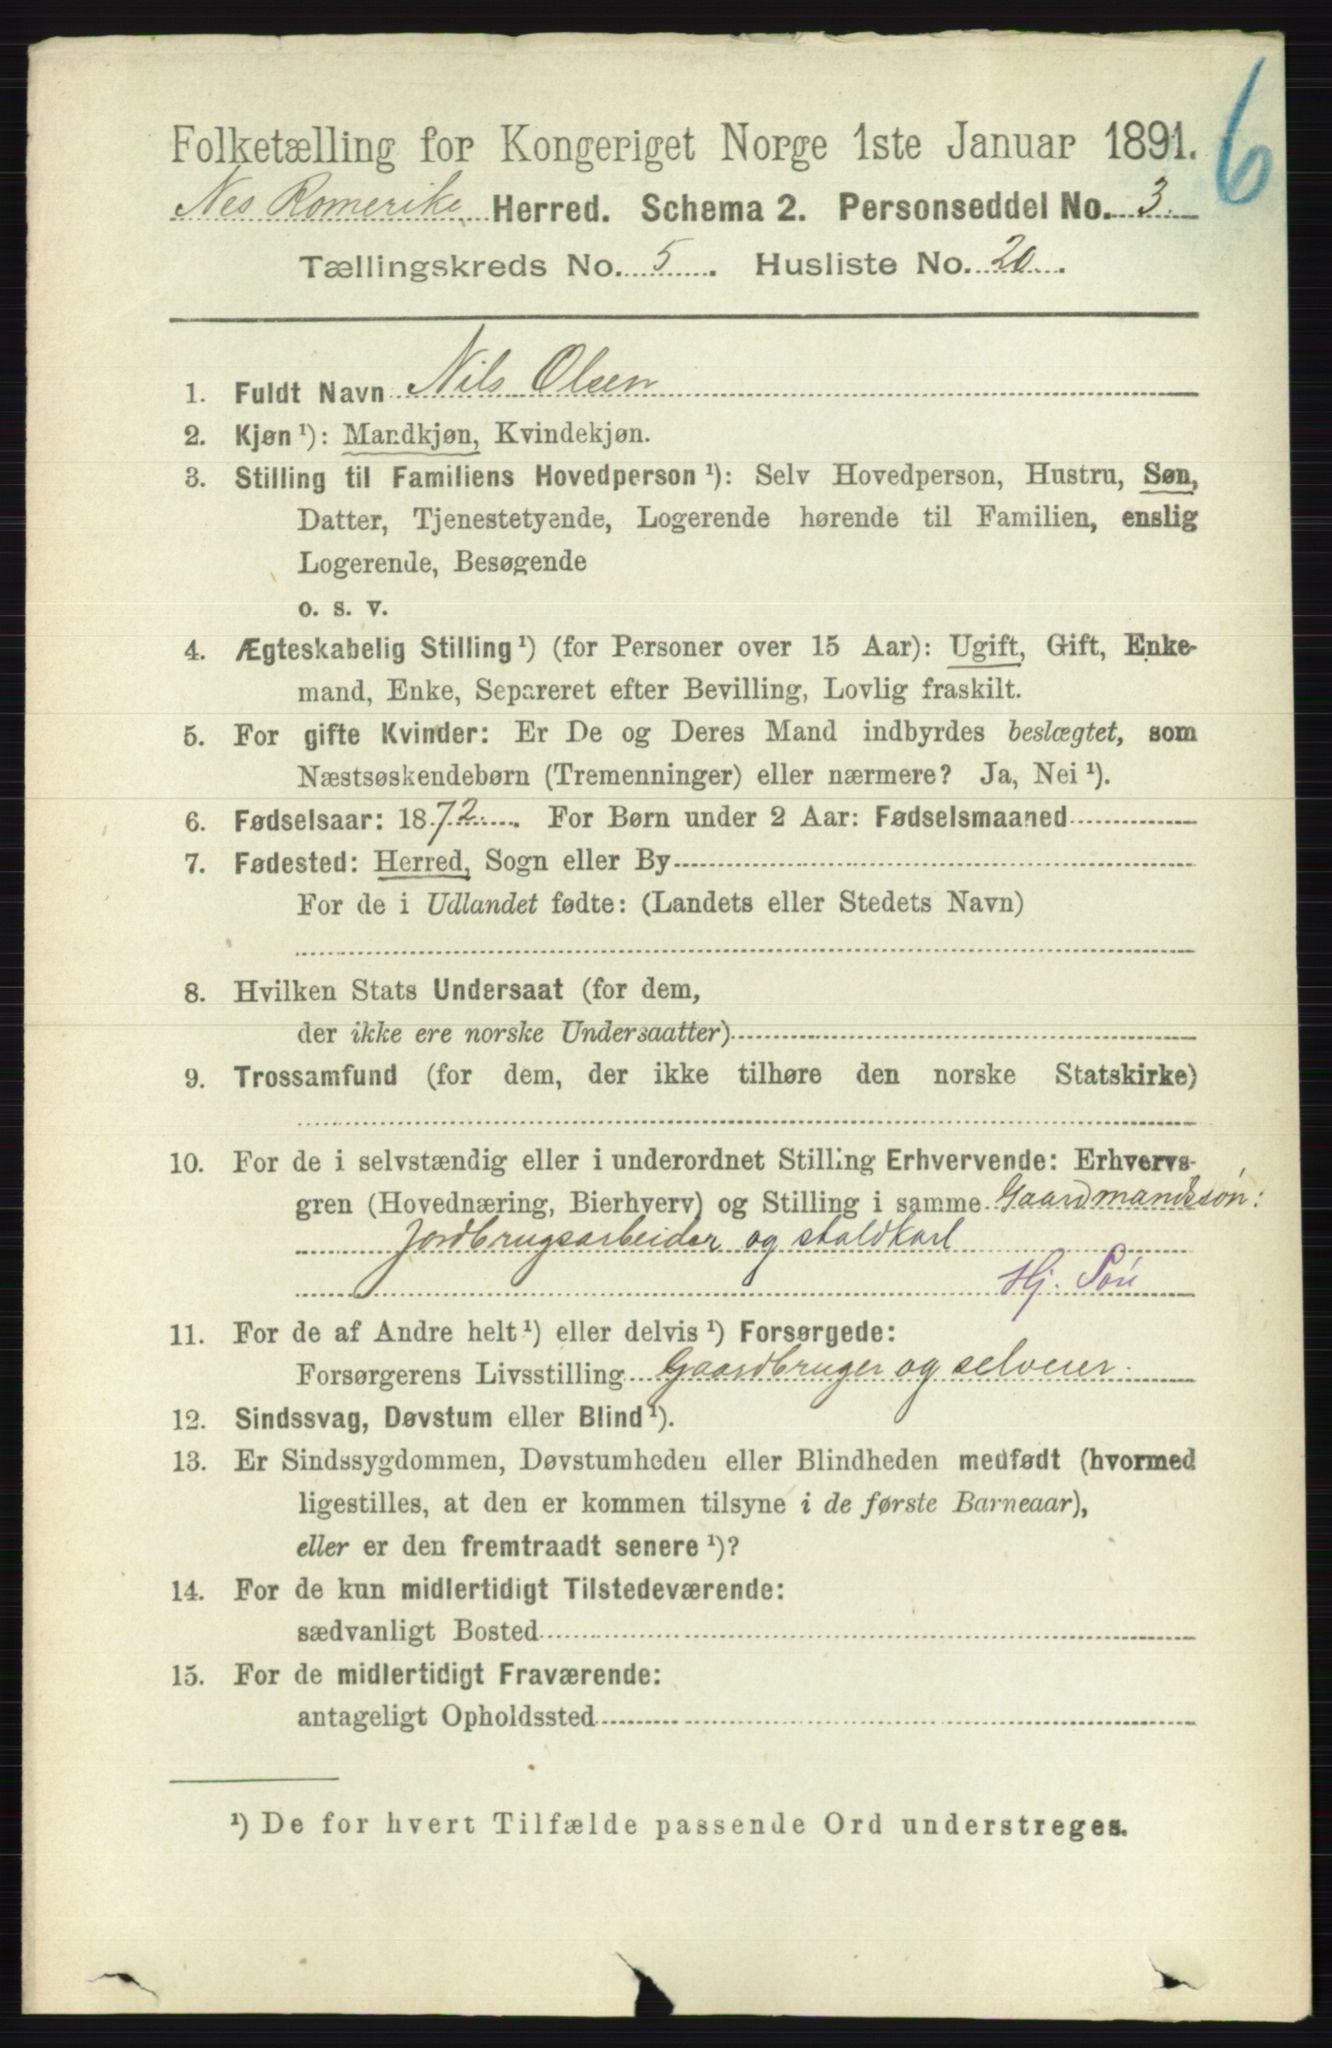 6
Folketælling for Kongeriget Norge 1ste Januar 1891.
Nes Romerike Herred. Schema 2. Personseddel No. 3.
Tællingskreds No. 5. Husliste No. 20.
1. Fuldt Navn Nils Olsen
2. Kjøn ¹): Mandkjøn, Kvindekjøn.
3. Stilling til Familiens Hovedperson ¹): Selv Hovedperson, Hustru, Søn,
Datter, Tjenestetyende, Logerende hørende til Familien, enslig
Logerende, Besøgende
o. s. v.
4. Ægteskabelig Stilling ¹) (for Personer over 15 Aar): Ugift, Gift, Enke-
mand, Enke, Separeret efter Bevilling, Lovlig fraskilt.
5. For gifte Kvinder: Er De og Deres Mand indbyrdes beslægtet, som
Næstsøskendebørn (Tremenninger) eller nærmere? Ja, Nei ¹).
6. Fødselsaar: 1872. For Børn under 2 Aar: Fødselsmaaned
7. Fødested: Herred, Sogn eller By
For de i Udlandet fødte: (Landets eller Stedets Navn)
8. Hvilken Stats Undersaat (for dem,
der ikke ere norske Undersaatter)
9. Trossamfund (for dem, der ikke tilhøre den norske Statskirke)
10. For de i selvstændig eller i underordnet Stilling Erhvervende: Erhvervs-
gren (Hovednæring, Bierhverv) og Stilling i samme Gaardmandssøn:
Jordbrugsarbeider og staldkarl
Hj. Søn
11. For de af Andre helt ¹) eller delvis ¹) Forsørgede:
Forsørgerens Livsstilling Gaardbruger og selveier.
12. Sindssvag, Døvstum eller Blind ¹).
13. Er Sindssygdommen, Døvstumheden eller Blindheden medfødt (hvormed
ligestilles, at den er kommen tilsyne i de første Barneaar),
eller er den fremtraadt senere ¹)?
14. For de kun midlertidigt Tilstedeværende:
sædvanligt Bosted
15. For de midlertidigt Fraværende:
antageligt Opholdssted
¹) De for hvert Tilfælde passende Ord understreges.